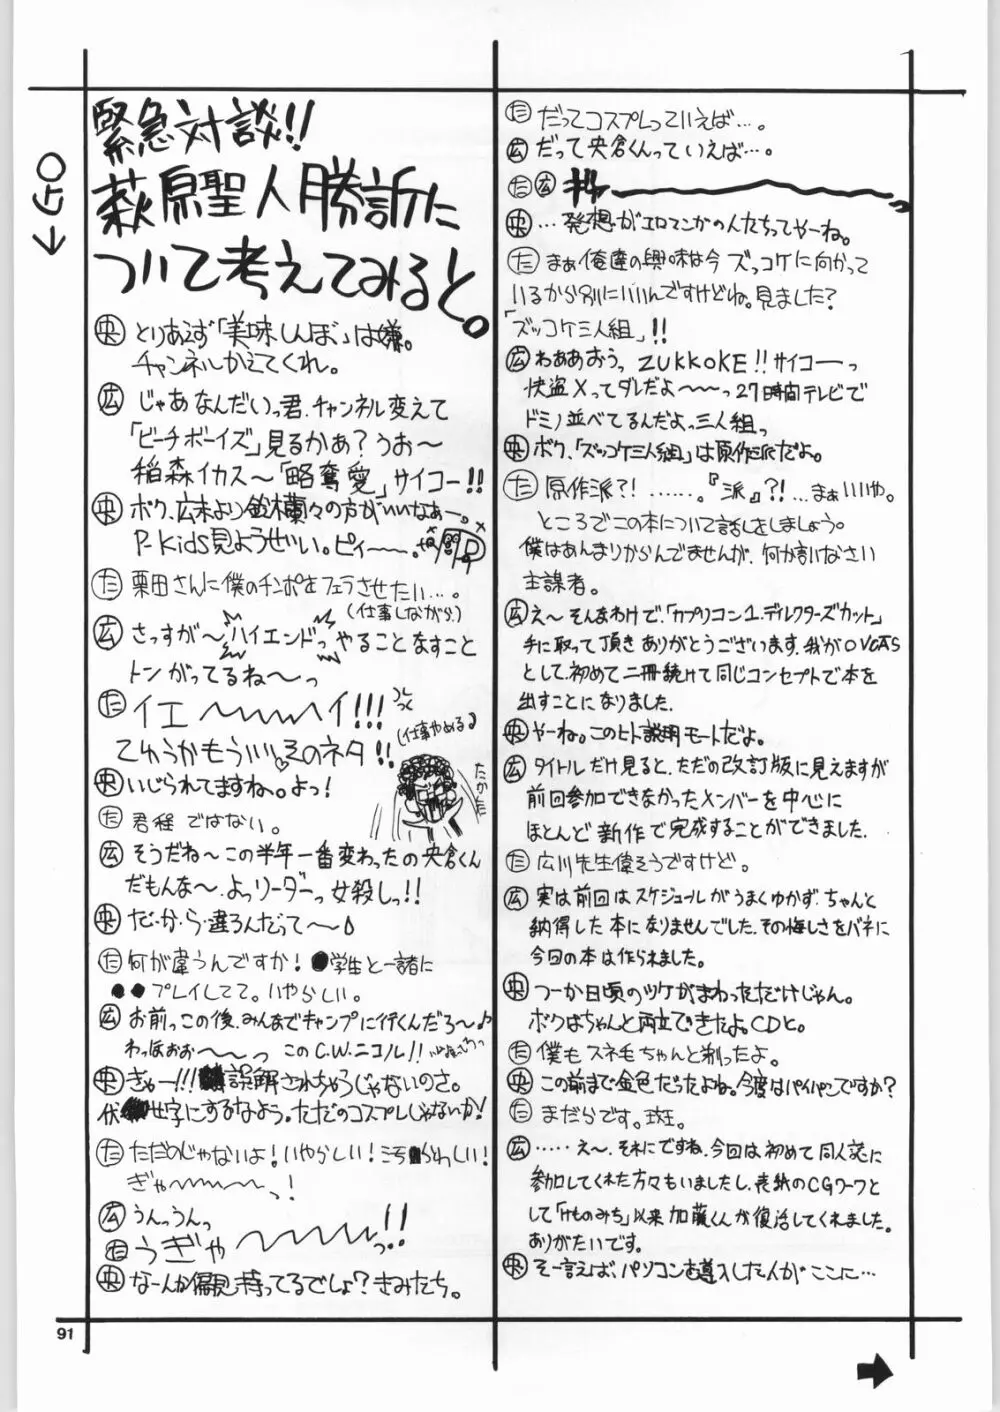 ←GO
緊急対談!!
萩原聖人勝訴に
ついて考えてみると。
央 とりあえず「美味しんぼ」は嫌。
チャンネルかえてくれ。
広 じゃあなんだいっ君、チャンネル変えて
「ビーチボーイズ」見るかぁ?うお〜
稲森イカス〜「略奪愛」サイコー!!
央 ボク、広末より鈴木蘭々の方がいいなぁー。
P-Kids見ようぜい。ピィ〜〜。
た 栗田さんに僕のチンポをフェラさせたい…。
(仕事しながら)
広 さっすが〜ハイエンドっ やることなすこと
トンがってるね〜っ
た イエ〜〜〜イ!!!
(仕事やめる)
てゆうかもういいよそのネタ!!
央 いじられてますね。よっ!
た 君程ではない。
広 そうだね〜この半年一番変わったの央倉くん
だもんな〜。よっリーダーっ女殺しっ!!
央 だ・か・ら・違うんだって〜♪
た 何が違うんですか!●学生と一諸に
●●プレイしてて。いやらしい。
広 お前っこの後、みんなでキャンプに行くんだろ〜♪
わっほおぉ〜〜っ このC.W.ニコル!!
央 ぎゃー!!!誤解されちゃうじゃないのさ。
伏せ字にするなよう。ただのコスプレじゃないか!
た ただのじゃないよ!いやらしい!汚らわしい!
ぎゃ〜〜〜っ!
広 うんっうんっ
た うぎゃ〜〜〜っ!!
央 なーんか偏見持ってるでしょ?きみたち。
た だってコスプレっていえば…。
広 だって央倉くんっていえば…。
た 広
央 …発想がエロマンガの人たちってやーね。
た まぁ俺達の興味は今ズッコケに向かって
いるから別にいいんですけどね。見ました?
「ズッコケ三人組」!!
広 わああおうっ ZUKKOKE!!サイコーっ
快盗Xってダレだよ〜〜っ27時間テレビで
ドミノ並べてるんだよっ三人組っ
央 ボク、「ズッコケ三人組」は原作派だよ。
た 原作派?!……。『派』?!…まぁいいや。
ところでこの本について話しをしましょう。
僕はあんまりからんでませんが、何か言いなさい
主謀者。
広 え〜そんなわけで、「カプリコン1.ディレクターズカット」
手に取って頂きありがとうございます。我がOVCAS
として、初めて二冊続けて同じコンセプトで本を
出すことになりました。
央 やーね。このヒト説明モードだよ。
広 タイトルだけ見ると、ただの改訂版に見えますが
前回参加できなかったメンバーを中心に
ほとんど新作で完成することができました。
た 広川先生偉そうですけど。
広 実は前回はスケジュールがうまくゆかず、ちゃんと
納得した本になりませんでした。その悔しさをバネに
今回の本は作られました。
央 つーか日頃のツケがまわっただけじゃん。
ボクはちゃんと両立できたよ。CDと。
た 僕もスネ毛ちゃんと剃ったよ。
央 この前まで金色だったよね。今度はパイパンですか?
た まだらです。斑。
広 ……え〜、それにですね、今回は初めて同人誌に
参加してくれた方々もいましたし、表紙のCGワークと
して「けものみち」以来加藤くんが復活してくれました。
ありがたいです。
央 そー言えば、パソコンを導入した人がここに…
91